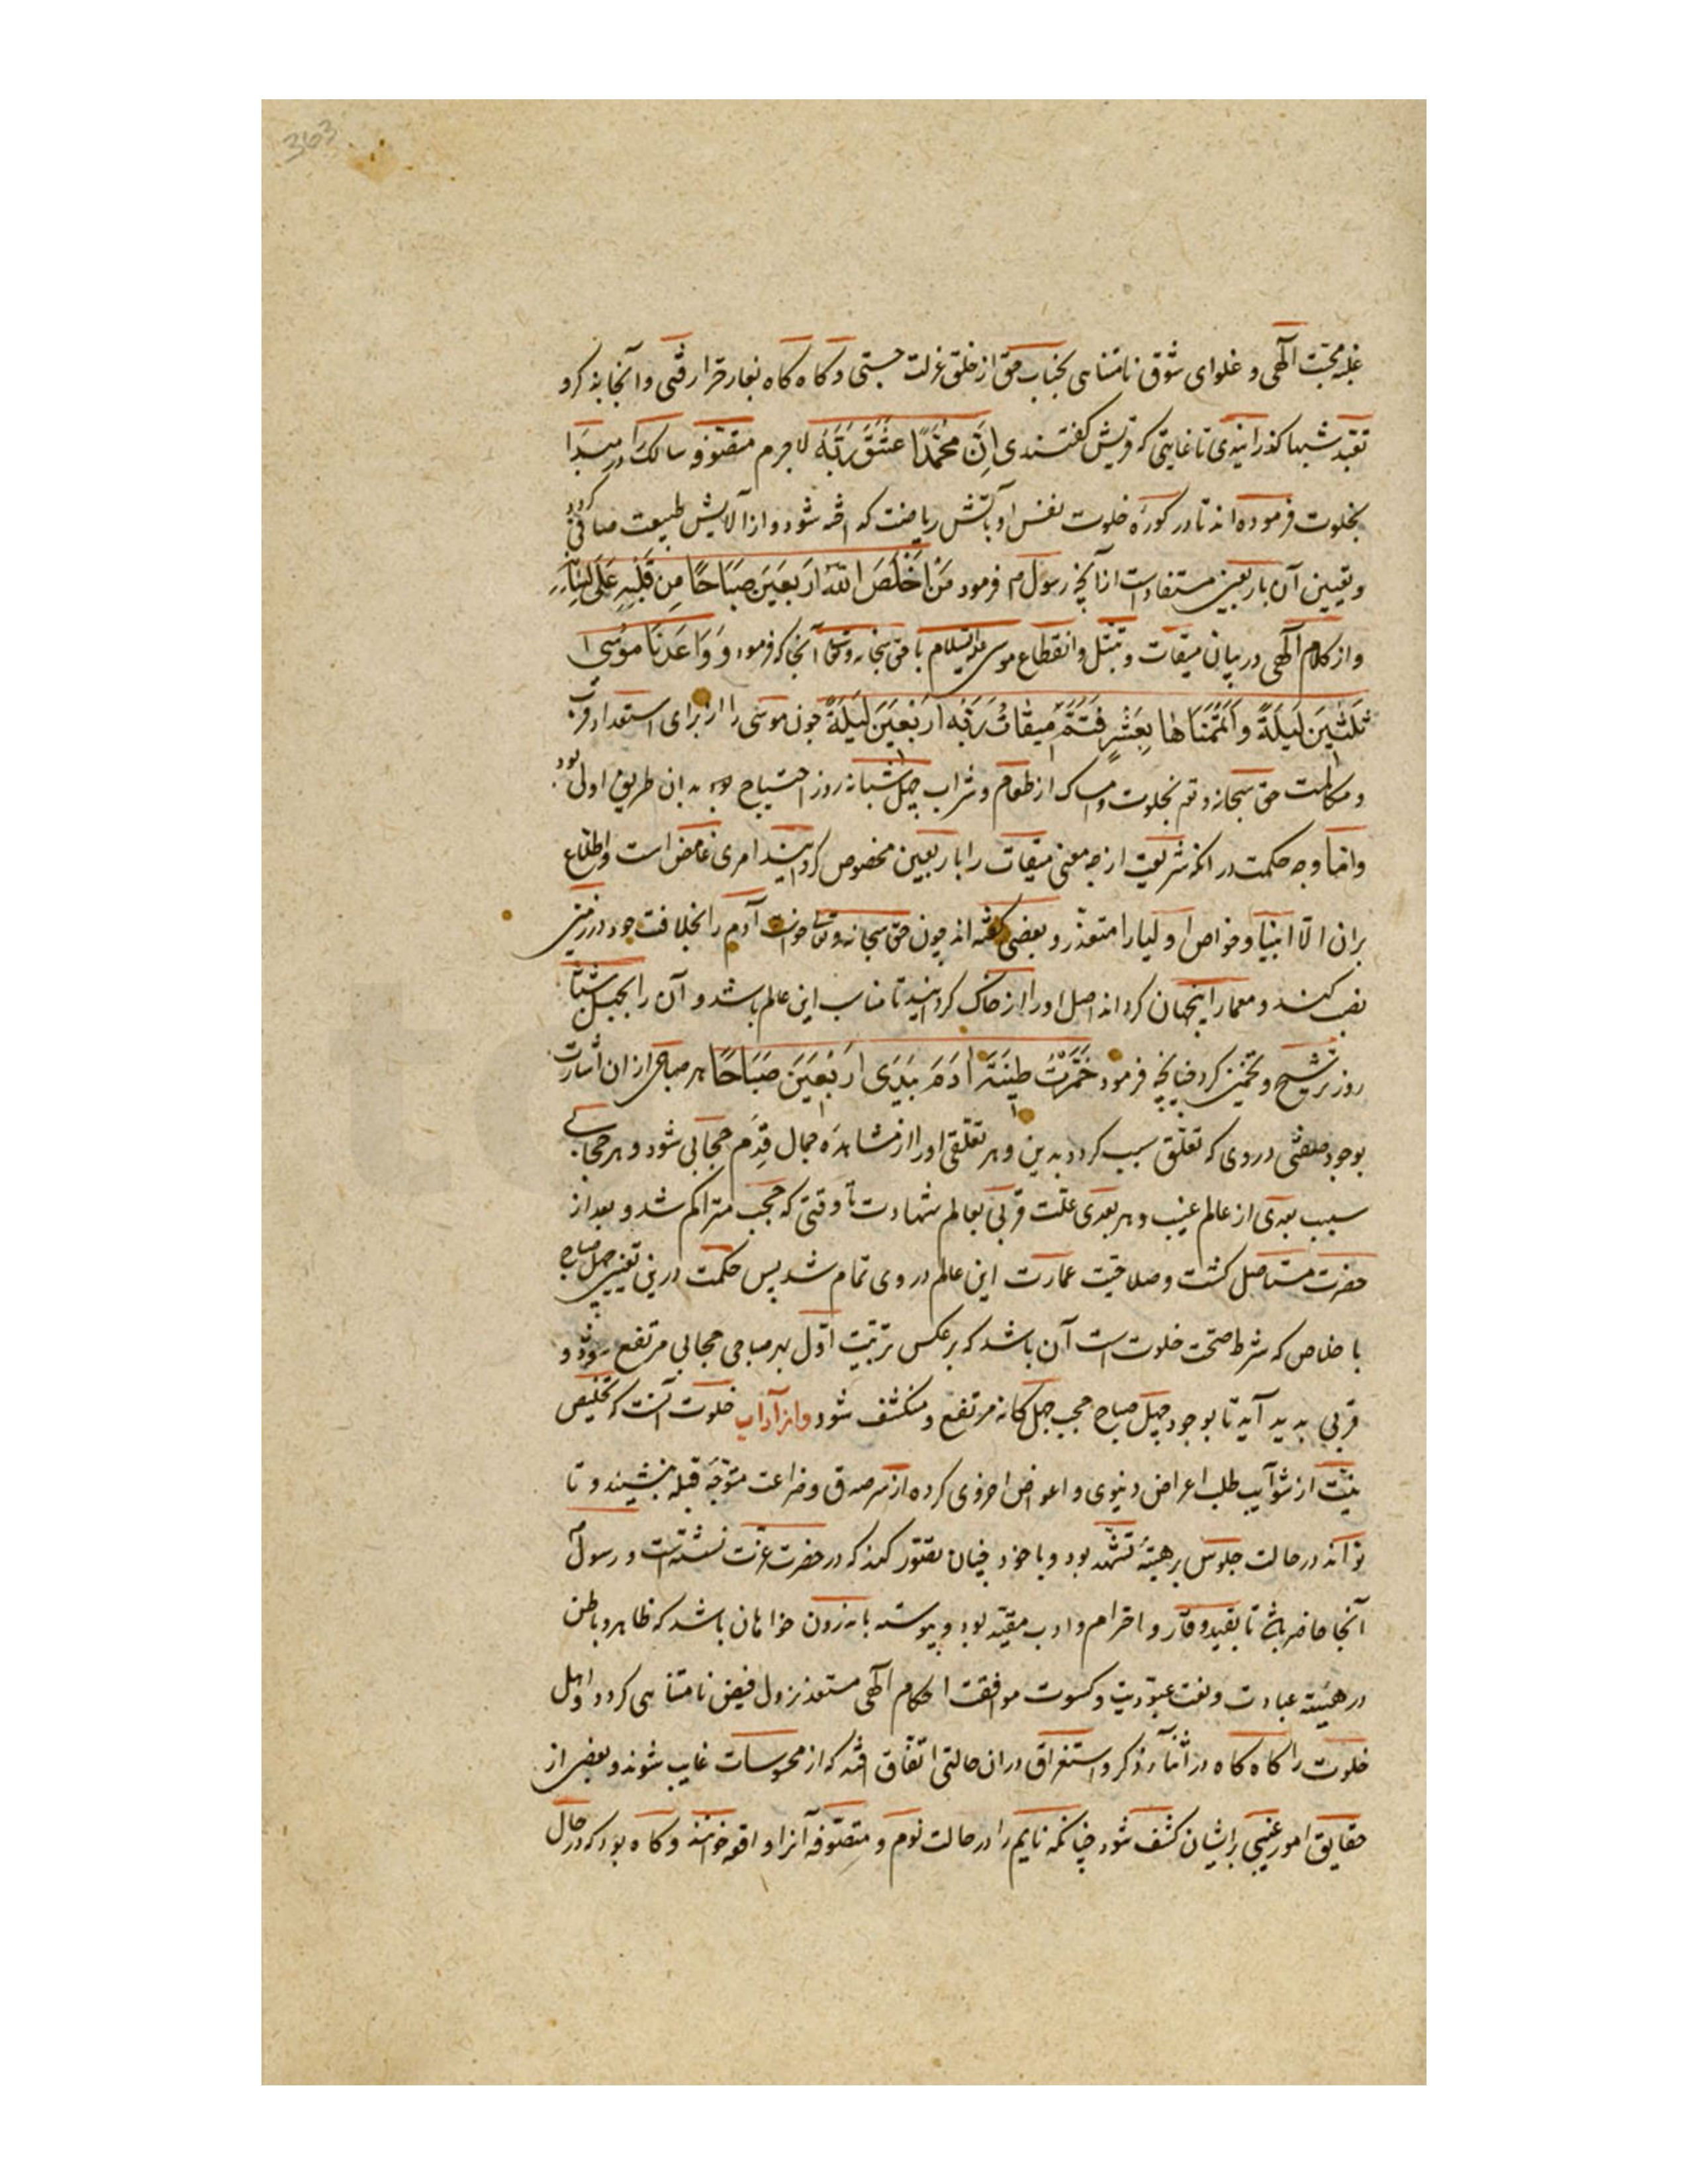 غلبهٔ محبّت آلهی و غلوای شوق نامتناهی بجناب حق از خلق عزلت جستی و کاه کاه بغار حرا رفتی و آنجا بذکر و
تعبّد شبها کذرانیدی تا غایتی که قریش کفتندی اِنَّ مُحَمَّدًا عَشَقَ رَبَّهُ لاجرم متصوّفه سالک را در مبدا
بخلوت فرموده‌اند تا در کورهٔ خلوت نفس او بآتش ریاضت کداخته شود و از آلایش طبیعت صافی کردد
و تعیین آن باربعین مستفادست از آنچه رسول م فرمود مَنْ اَخْلَصَ لِلّٰهِ اَرْبَعِيَنَ صَبَاحًا مِن قَلْبِهِ عَلَی لِسَانِهِ
و از کلام آلهی در بیان میقات و تبتّل و انقطاع موسی علیه السلام با حق سبحانه و تعالی آنجا که فرمود وَ وَاعَدْنَا مُوسٰی
ثَلٰثٖينَ لَيْلَةً وَاَتْمَمْنَاهٰا بِعَشْرٍ فَتَمَّ مٖيقٰاتُ رَبِّهٖ اَرْبَعٖينَ لَيْلَةً چون موسی را از برای استعداد قرب
و مکالمت حق سبحانه و تع بخلوت و امساک از طعام و شراب چهل شبانه روز احتیاج بود بدان طریق اولی بود
وامّا وجه حکمت در انکه شریعت از چه معنی میقات را باربعین مخصوص کردانید امری غامض است و اطلاع
بران الا انبیا و خواص اولیا را متعذّر و بعضی کفته اند چون حق سبحانه و تعالی خواست آدم را بخلافت خود در زمین
نصب کند و معمار اینجهان کرداند اصل او را از خاک کردانید تا مناسب این عالم باشد و آن را بچهل شبا
روز ترشیح و تخمیر کرد چنانچه فرمود خَمَّرْتُ طِيْنَةَ اٰدَمَ بِيَدَی اَرْبَعٖيَنَ صَبَاحًا هر صباحی از ان اشارت
بوجود صفتی در وی که تعلّق سبب کردد بدین و هر تعلّقی او را از مشاهدهٔ جمال قِدَم حجابی شود و هر حجابی
سبب بعدی از عالم غیب و هر بعدی علّت قربی بعالم شهادت تا وقتی که حجب متراکم شد و بعد از
حضرت متاصل کشت و صلاحیت عمارت این عالم در وی تمام شد پس حکمت درین تعیین چهل صباح
باخلاص که شرط صحّت خلوت است آن باشد که بر عکس ترتیب اوّل بهر صباحی حجابی مرتفع شود و
قربی بدید آید تا بوجود چهل صباح حجب چهل کانه مرتفع و منکشف شود وامّا آداب خلوت آنست که تخلیص
نیّت از شوآیب طلب اعراض دنیوی و اعواض اخروی کرده از سر صدق و ضراعت متوجّه قبله بنشیند و تا
تواند در حالت جلوس بر هیئهٔ تشهّد بود و با خود چنان تصوّر کند که در حضرت عزّت نشسته است و رسول م
آنجا حاضر باشد تا بقید وقار و احترام و ادب مقیّد بود و پیوسته باندرون خواهان باشد که ظاهر و باطن
در هیئهٔ عبادت و نعت عبودیت و کسوت موافقت احکام آلهی مستعد نزول فیض نامتناهی کردد و اهل
خلوت را کاه کاه در اثنآء ذکر و استغراق دران حالتی اتّفاق افتد که از محسوسات غایب شوند و بعضی از
حقایق امور غیبی بر ایشان کشف شود چنانکه نایم را در حالت نوم و متصوّفه آنرا واقعه خوانند و کاه بود که در حال